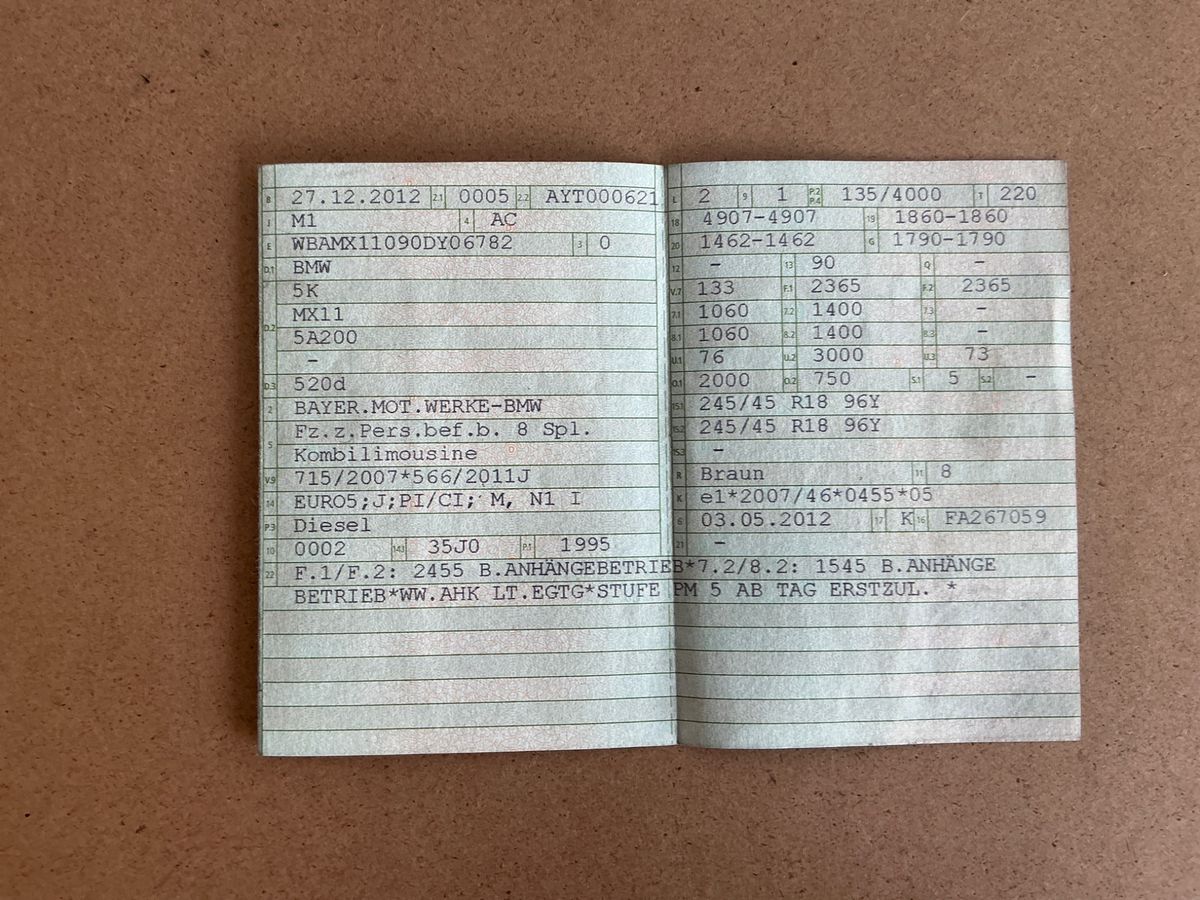 B 27.12.2012 2.1 0005 2.2 AYT000621
J M1 4 AC
E WBAMX11090DY06782 3 0
D.1 BMW
5K
MX11
D.2 5A200
–
D.3 520d
2 BAYER.MOT.WERKE-BMW
Fz.z.Pers.bef.b. 8 Spl.
5 Kombilimousine
V.9 715/2007*566/2011J
14 EURO5;J;PI/CI; M, N1 I
P.3 Diesel
10 0002 14.1 35J0 P.1 1995
L 2 9 1 P.2 P.4 135/4000 T 220
18 4907-4907 19 1860-1860
20 1462-1462 G 1790-1790
12 – 13 90 Q –
V.7 133 F.1 2365 F.2 2365
7.1 1060 7.2 1400 7.3 –
8.1 1060 8.2 1400 8.3 –
U.1 76 U.2 3000 U.3 73
O.1 2000 O.2 750 S.1 5 S.2 –
15.1 245/45 R18 96Y
15.2 245/45 R18 96Y
15.3 –
R Braun 11 8
K e1*2007/46*0455*05
6 03.05.2012 17 K 16 FA267059
21 –
22 F.1/F.2: 2455 B.ANHÄNGEBETRIEB*7.2/8.2: 1545 B.ANHÄNGE
BETRIEB*WW.AHK LT.EGTG*STUFE PM 5 AB TAG ERSTZUL. *